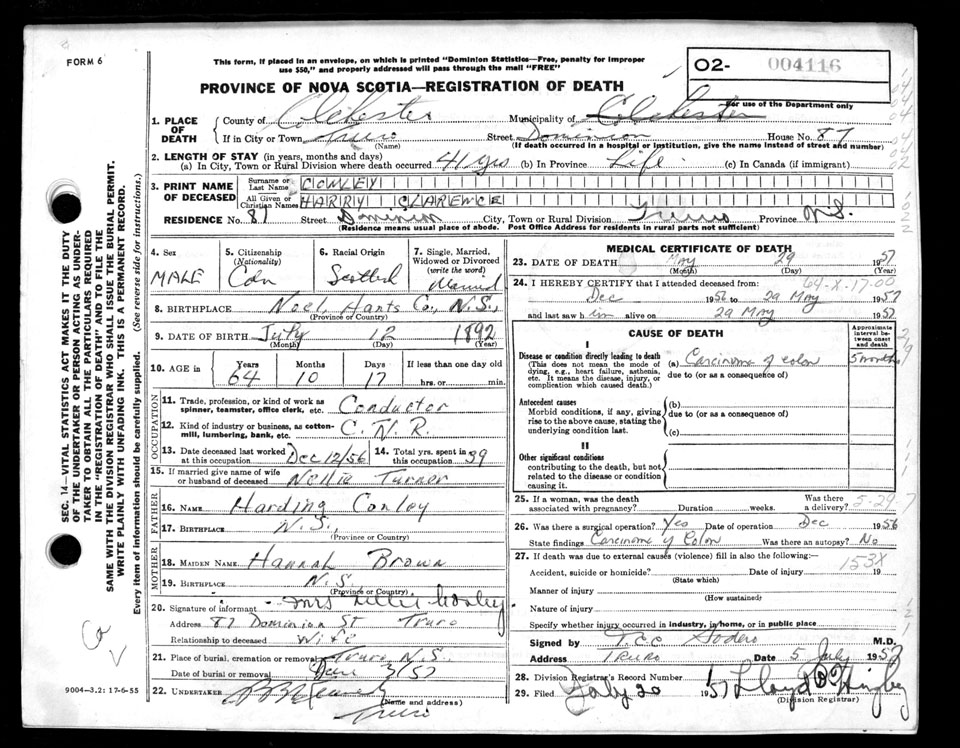 FORM 6
This form, if placed in an envelope, on which is printed "Dominion Statistics—Free, penalty for improper
use $50," and properly addressed will pass through the mail "FREE"
O2- 004116
For use of the Department only
PROVINCE OF NOVA SCOTIA—REGISTRATION OF DEATH
1. PLACE OF DEATH
County of Colchester Municipality of Colchester
If in City or Town Truro Street Dominion House No. 87
(Name) (If death occurred in a hospital or institution, give the name instead of street and number)
2. LENGTH OF STAY (in years, months and days)
(a) In City, Town or Rural Division where death occurred 41 yrs (b) In Province Life (c) In Canada (if immigrant)
3. PRINT NAME OF DECEASED
Surname or Last Name CONLEY
All Given or Christian Names HARRY CLARENCE
RESIDENCE No. 87 Street Dominion City, Town or Rural Division Truro Province N.S.
(Residence means usual place of abode. Post Office Address for residents in rural parts not sufficient)
4. Sex
MALE
5. Citizenship (Nationality)
Can
6. Racial Origin
Scotch
7. Single, Married, Widowed or Divorced (write the word)
Married
8. BIRTHPLACE Noel, Hants Co., N.S.,
(Province or Country)
9. DATE OF BIRTH July 12 1892
(Month) (Day) (Year)
10. AGE in
Years Months Days If less than one day old
64 10 17 hrs. or min.
OCCUPATION
11. Trade, profession, or kind of work as spinner, teamster, office clerk, etc. Conductor
12. Kind of industry or business, as cotton-mill, lumbering, bank, etc. C.N.R.
13. Date deceased last worked at this occupation Dec 12/56
14. Total yrs. spent in this occupation 39
15. If married give name of wife or husband of deceased Nellie Turner
FATHER
16. NAME Harding Conley
17. BIRTHPLACE N.S.,
(Province or Country)
MOTHER
18. MAIDEN NAME Hannah Brown
19. BIRTHPLACE N.S.
(Province or Country)
20. Signature of informant Mrs Nellie Conley
Address 87 Dominion St Truro
Relationship to deceased Wife
21. Place of burial, cremation or removal Truro N.S.
Date of burial or removal June 3/57
22. UNDERTAKER
(Name and address)
Truro
MEDICAL CERTIFICATE OF DEATH
23. DATE OF DEATH May 29 1957
(Month) (Day) (Year)
64-X-17.00
24. I HEREBY CERTIFY that I attended deceased from:
Dec 1956 to 29 May 1957
and last saw him alive on 29 May 1957
CAUSE OF DEATH
Approximate interval between onset and death
I
Disease or condition directly leading to death
(This does not mean the mode of dying, e.g., heart failure, asthenia, etc. It means the disease, injury, or complication which caused death.)
(a) Carcinoma of colon 5 months
due to (or as a consequence of)
Antecedent causes
Morbid conditions, if any, giving rise to the above cause, stating the underlying condition last.
(b)
due to (or as a consequence of)
(c)
II
Other significant conditions
contributing to the death, but not related to the disease or condition causing it.
25. If a woman, was the death associated with pregnancy? Duration weeks. Was there a delivery?
5-29-7
26. Was there a surgical operation? Yes Date of operation Dec 1956
State findings Carcinoma of Colon Was there an autopsy? No
27. If death was due to external causes (violence) fill in also the following:—
153X
Accident, suicide or homicide? Date of injury 19
(State which)
Manner of injury
(How sustained)
Nature of injury
Specify whether injury occurred in industry, in home, or in public place
Signed by T.C.C. Sodero M.D.
Address TRURO Date 5 July 1957
28. Division Registrar's Record Number
29. Filed July 20 1957 Lloyd
(Division Registrar)
SEC. 14—VITAL STATISTICS ACT MAKES IT THE DUTY
OF THE UNDERTAKER OR PERSON ACTING AS UNDER-
TAKER TO OBTAIN ALL THE PARTICULARS REQUIRED
IN THE "REGISTRATION OF DEATH" AND TO FILE THE
SAME WITH THE DIVISION REGISTRAR WHO SHALL ISSUE THE BURIAL PERMIT.
WRITE PLAINLY WITH UNFADING INK. THIS IS A PERMANENT RECORD.
Every item of information should be carefully supplied. (See reverse side for instructions.)
9004—3.2: 17-6-55